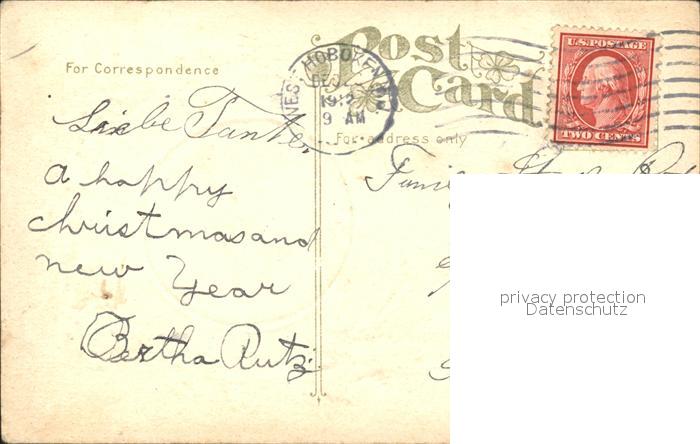 Post
Card
For Correspondence
For address only
WEST HOBOKEN
DEC
1912
9 AM
U.S. POSTAGE
TWO CENTS
Liebe Tante,
a happy
christmas and
new Year
Bertha Rutz
privacy protection
Datenschutz